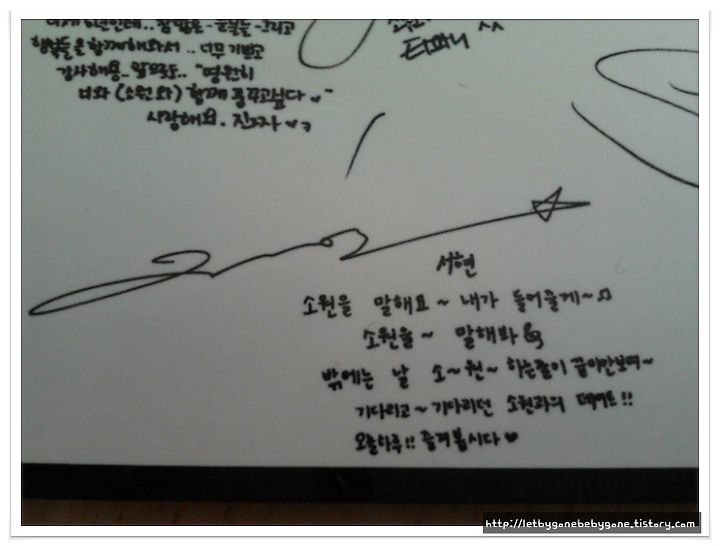 행복들을 함께해와서.. 너무 기쁘고
감사해용.. 앞으로도.. "영원히
너와 (소원과) 함께 꿈꾸고싶다 ♥"
사랑해요. 진짜 ♥
티파니 ^^
서현
소원을 말해요~ 내가 들어줄게~♫
소원을~ 말해봐
밖에는 날 소~원~ 하는줄이 끝이안보여~
기다리고~기다리던 소원과의 데이트!!
오늘하루!! 즐겨봅시다♥
http://letbygonebebygone.tistory.com